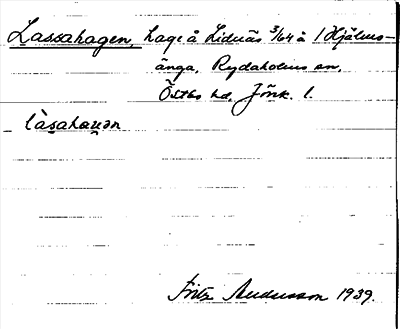 Lassahagen, hage å Lidnäs 3/64 å 1 Hjälms-
änga, Rydaholms sn,
Östbo hd, Jönk. l.
làsahaꞬən
Fritz Andersson 1939.